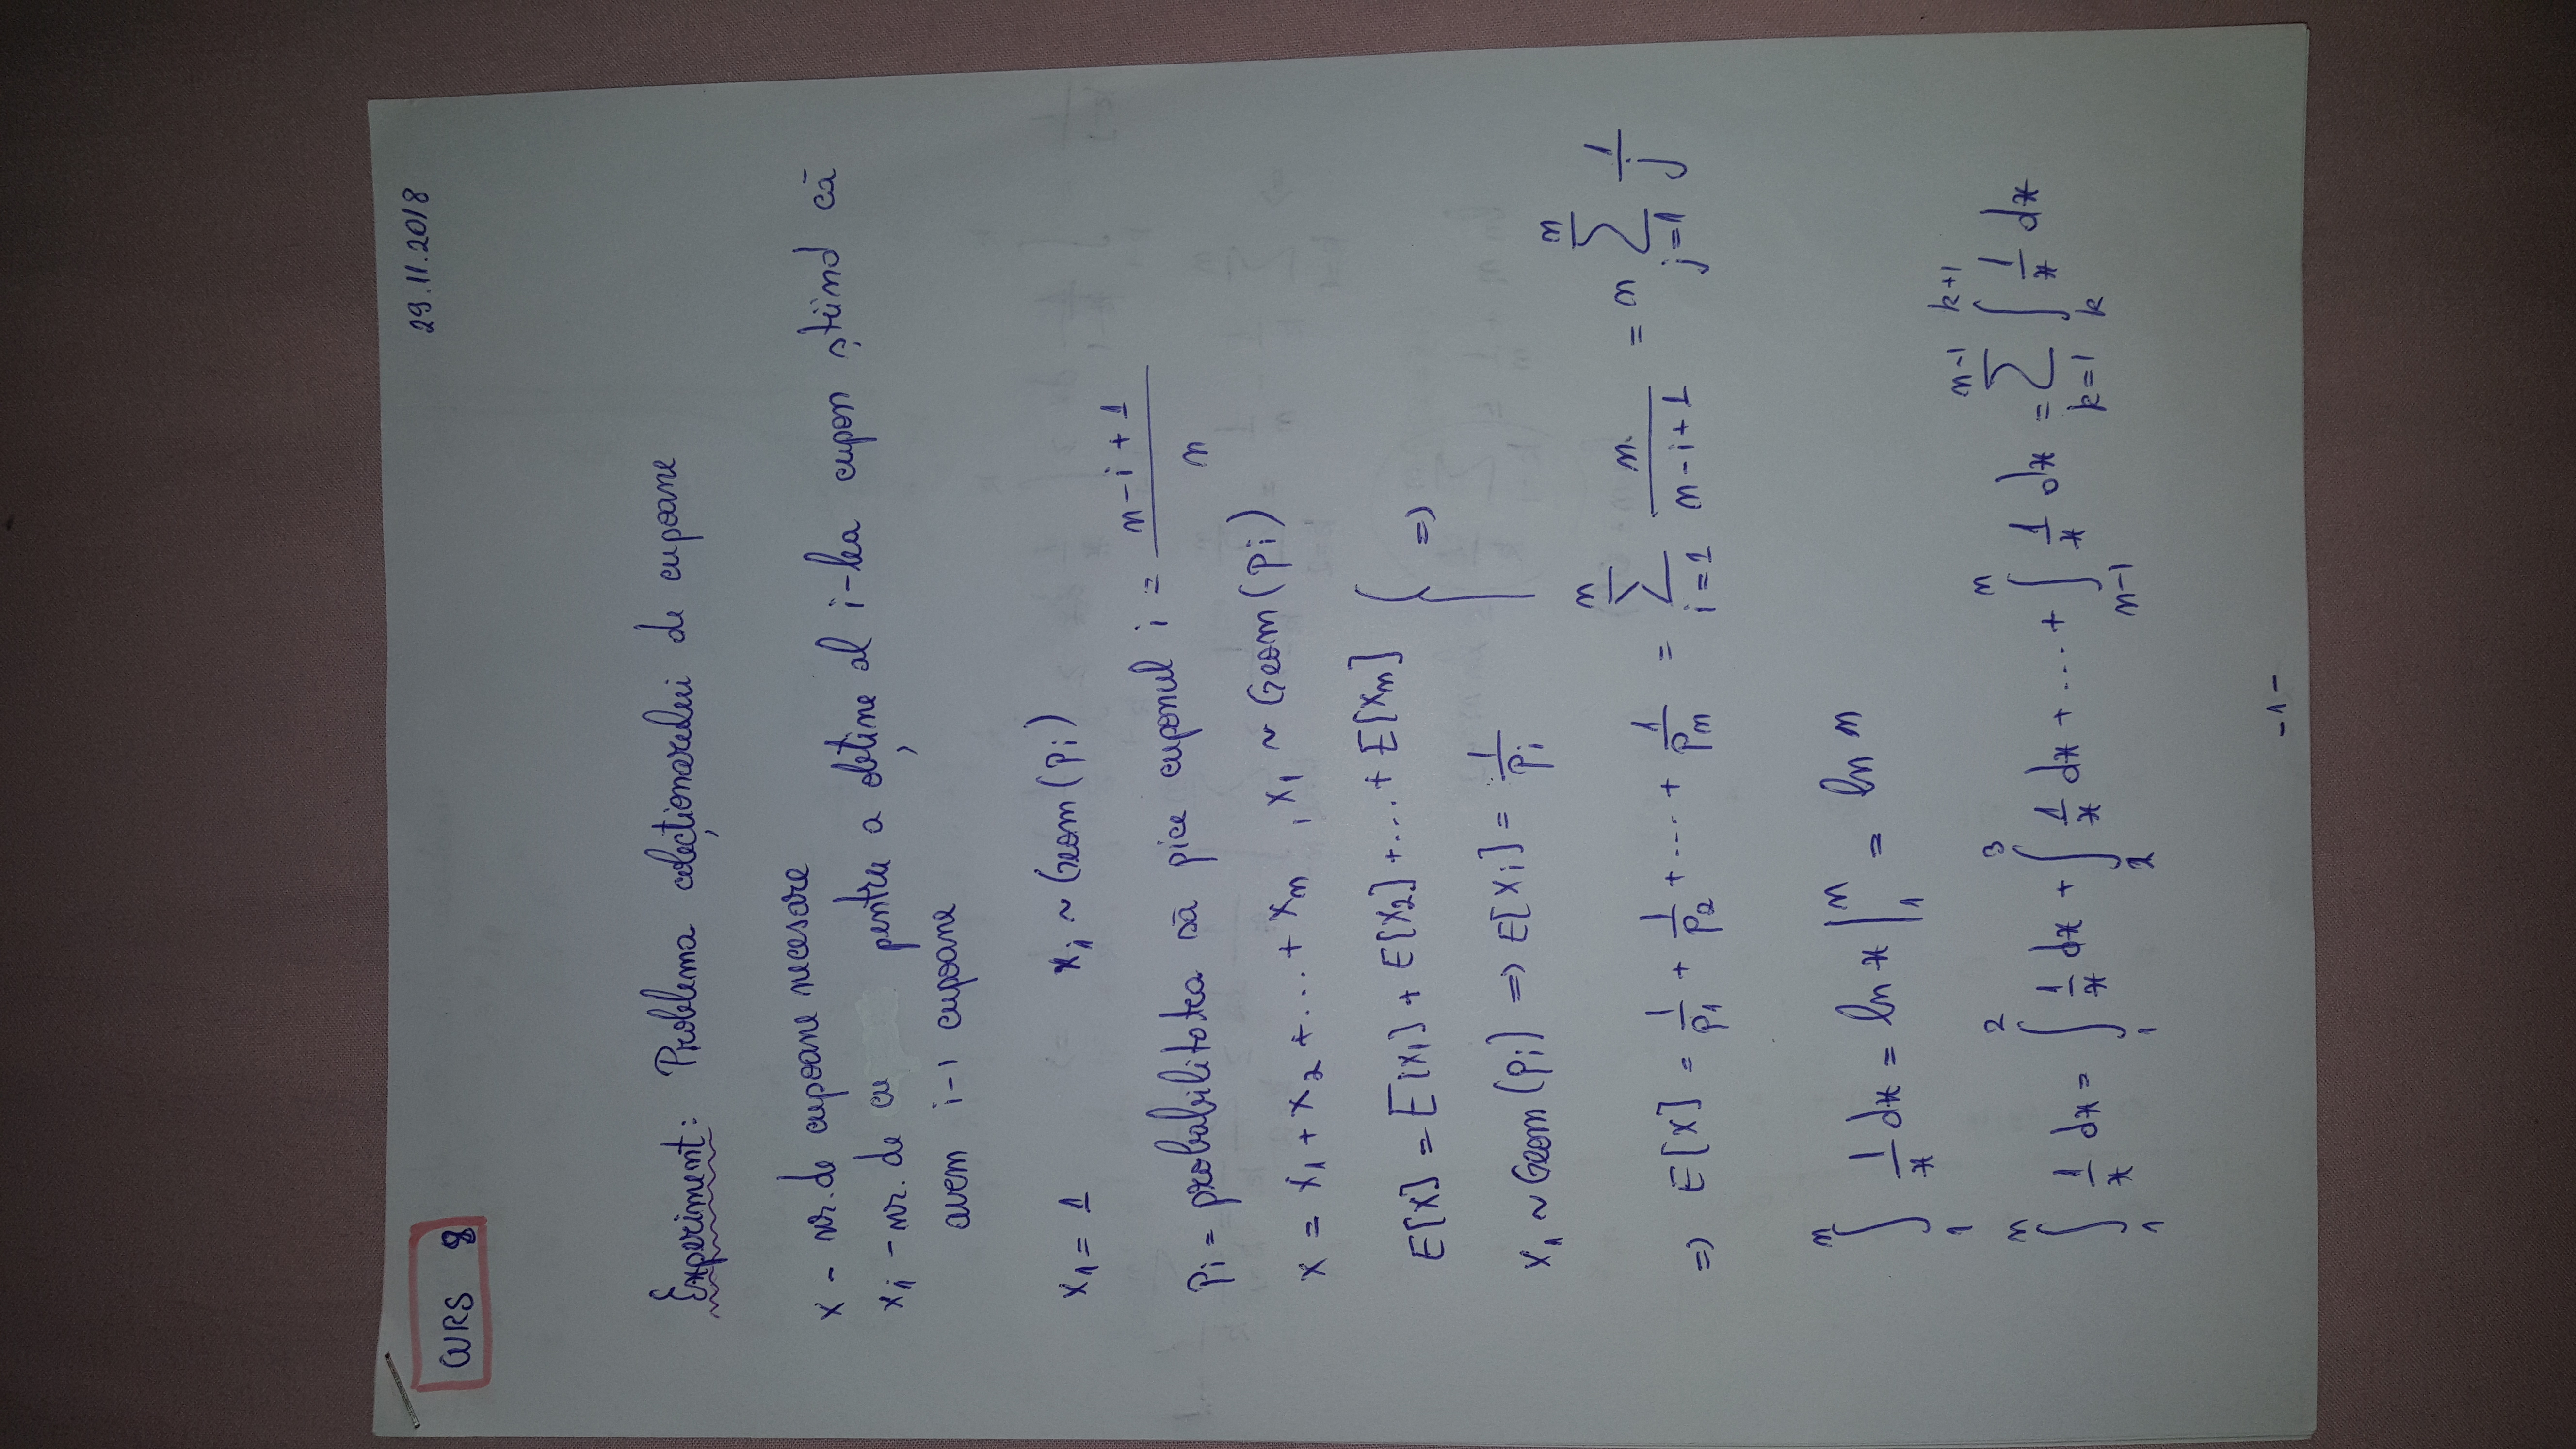 CURS 8
29.11.2018
Experiment: Problema colecționarului de cupoane
x - nr. de cupoane necesare
xᵢ - nr. de cu pentru a obține al i-lea cupon știind că
avem i-1 cupoane
x₁ = 1    xᵢ ~ Geom(pᵢ)
pᵢ = probabilitatea să pice cuponul i = (n-i+1)/n
x = x₁ + x₂ + ... + xₙ , x₁ ~ Geom(pᵢ)
E[X] = E[X₁] + E[X₂] + ... + E[Xₙ]
x₁ ~ Geom(pᵢ) => E[Xᵢ] = 1/pᵢ } =>
=> E[X] = 1/p₁ + 1/p₂ + ... + 1/pₙ = ∑_{i=1}^{n} n/(n-i+1) = n ∑_{j=1}^{n} 1/j
∫_{1}^{n} 1/x dx = ln x |_{1}^{n} = ln n
∫_{1}^{n} 1/x dx = ∫_{1}^{2} 1/x dx + ∫_{2}^{3} 1/x dx + ... + ∫_{n-1}^{n} 1/x dx = ∑_{k=1}^{n-1} ∫_{k}^{k+1} 1/x dx
-1-